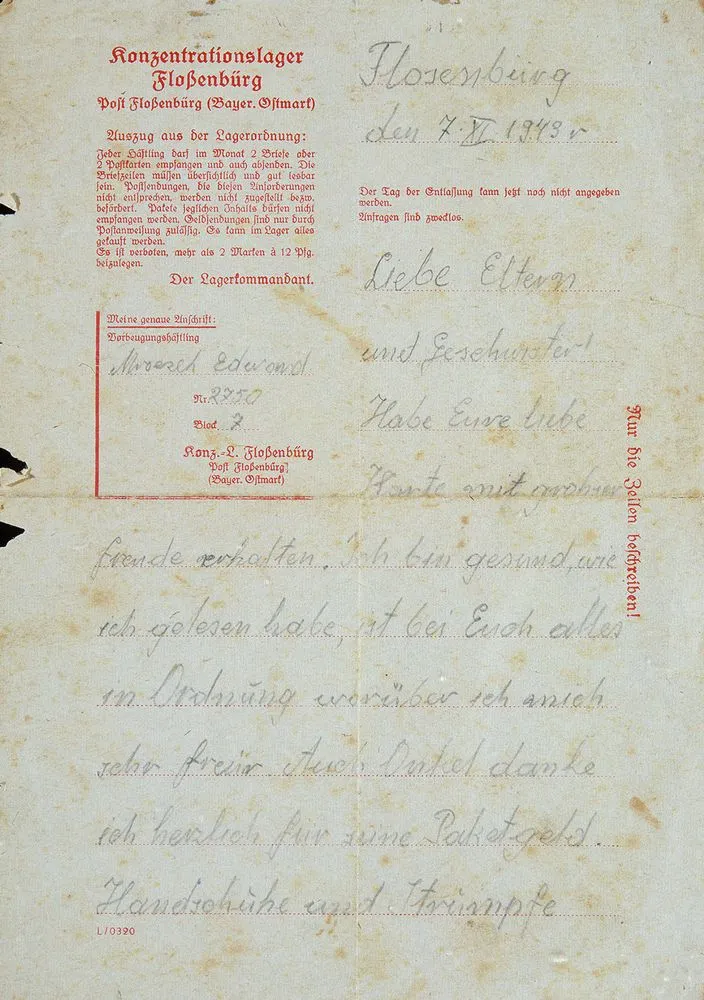 Konzentrationslager
Floßenbürg
Post Floßenbürg (Bayer. Ostmark)
Auszug aus der Lagerordnung:
Jeder Häftling darf im Monat 2 Briefe oder
2 Postkarten empfangen und auch absenden. Die
Briefzeilen müssen übersichtlich und gut lesbar
sein. Postsendungen, die diesen Anforderungen
nicht entsprechen, werden nicht zugestellt bezw.
befördert. Pakete jeglichen Inhalts dürfen nicht
empfangen werden. Geldsendungen sind nur durch
Postanweisung zulässig. Es kann im Lager alles
gekauft werden.
Es ist verboten, mehr als 2 Marken à 12 Pfg.
beizulegen.
Der Lagerkommandant.
Meine genaue Anschrift:
Vorbeugungshäftling
Mroszek Edward
Nr. 2750
Block 7
Konz.-L. Floßenbürg
Post Floßenbürg
(Bayer. Ostmark)
Flosenbürg
den 7. XI 1943 r
Der Tag der Entlassung kann jetzt noch nicht angegeben
werden.
Anfragen sind zwecklos.
Liebe Eltern
und Geschwister!
Habe Eure liebe
Karte mit grohser
freude erhalten. Ich bin gesund, wie
ich gelesen habe, ist bei Euch alles
in Ordnung worüber ich mich
sehr freür. Auch Onkel danke
ich herzlich für seine Paketgeld.
Handschühe und Strümpfe
Nur die Zeilen beschreiben!
L/0320